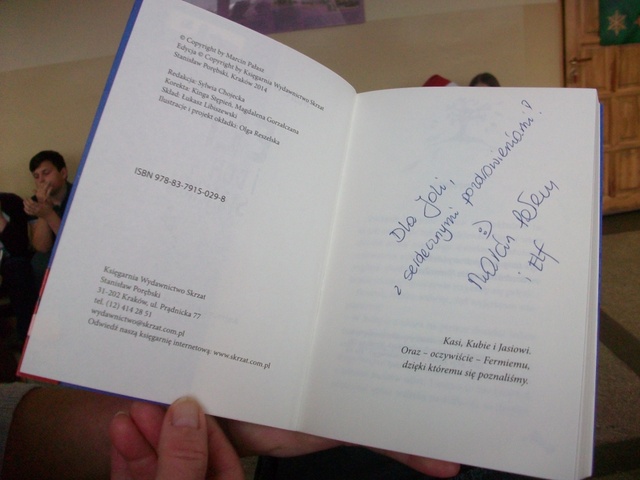 © Copyright by Marcin Pałasz
Edycja © Copyright by Księgarnia Wydawnictwo Skrzat
Stanisław Porębski, Kraków 2014
Redakcja: Sylwia Chojecka
Korekta: Kinga Stępień, Magdalena Gorzałczana
Skład: Łukasz Libiszewski
Ilustracje i projekt okładki: Olga Reszelska
ISBN 978-83-7915-029-8
Księgarnia Wydawnictwo Skrzat
Stanisław Porębski
31-202 Kraków, ul. Prądnicka 77
tel. (12) 414 28 51
wydawnictwo@skrzat.com.pl
Odwiedź naszą księgarnię internetową: www.skrzat.com.pl
Dla Joli,
z serdecznymi pozdrowieniami!
:)
Marcin Pałasz
i Elf
Kasi, Kubie i Jasiowi.
Oraz – oczywiście – Fermiemu,
dzięki któremu się poznaliśmy.